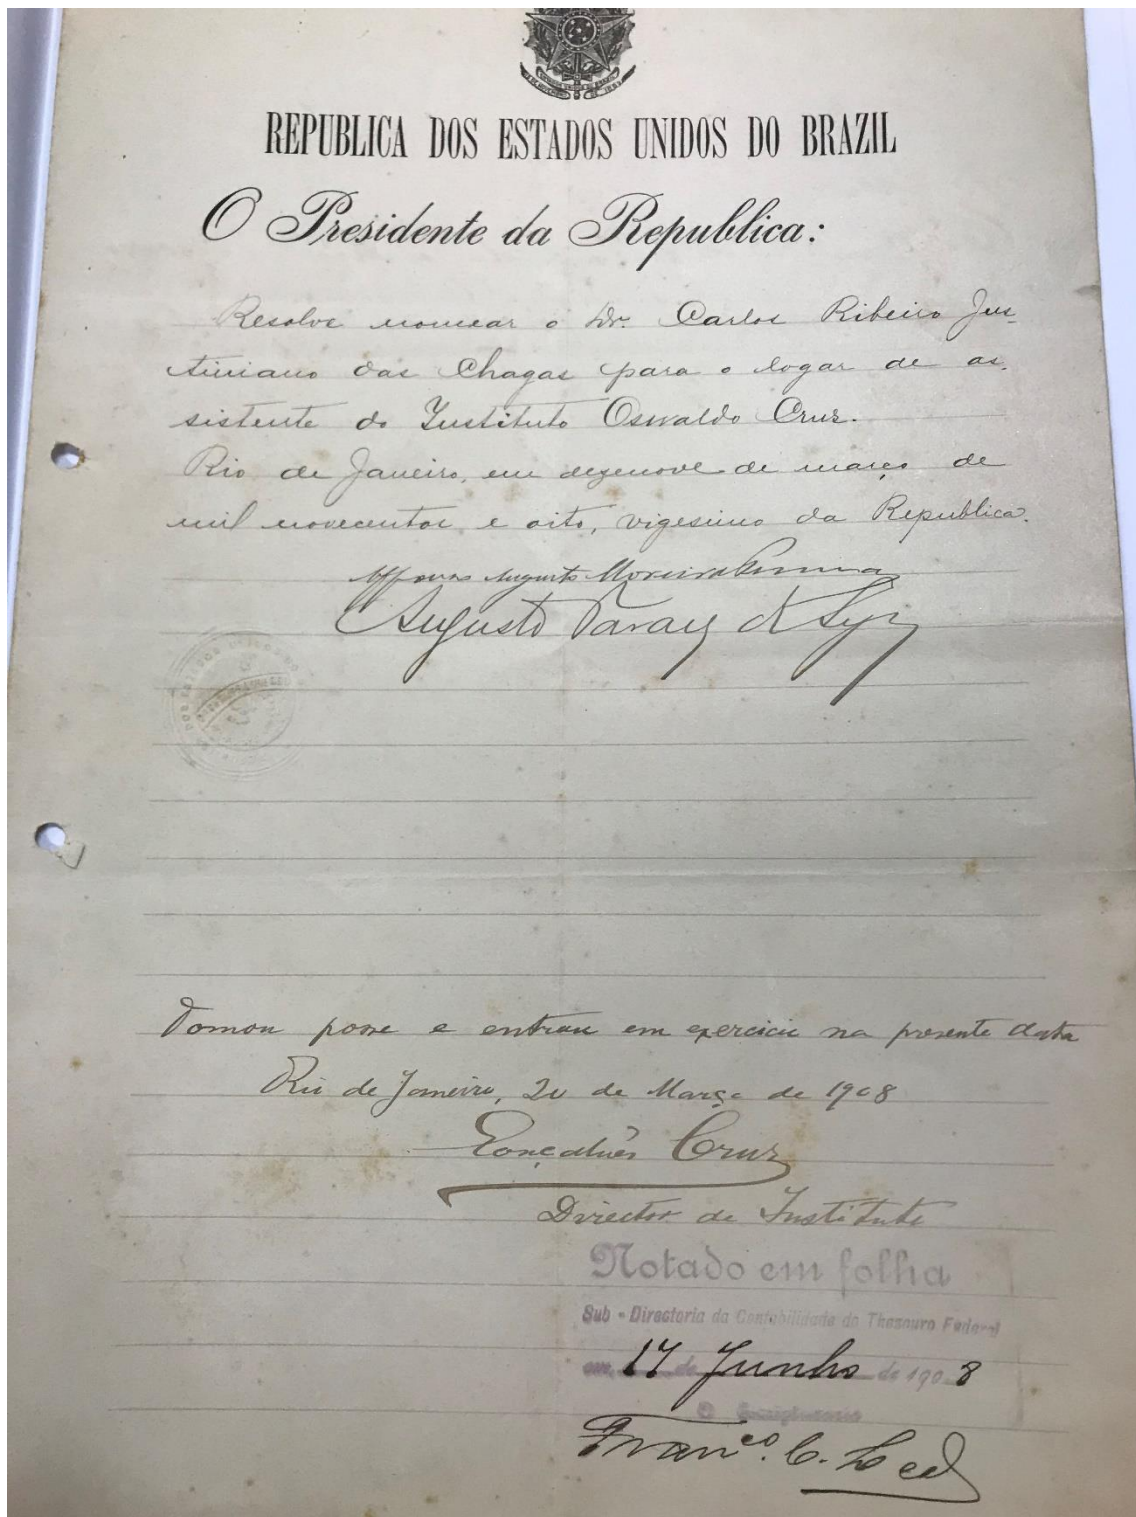 REPUBLICA DOS ESTADOS UNIDOS DO BRAZIL
O Presidente da Republica:
Resolve nomear o Dr. Carlos Ribeiro Jus-
tiniano das Chagas para o logar de as-
sistente do Instituto Oswaldo Cruz.
Rio de Janeiro, em dezenove de março de
mil novecentos e oito, vigesimo da Republica.
Affonso Augusto Moreira Penna
Augusto Tavares de Lyra
Tomou posse e entrou em exercicio na presente data
Rio de Janeiro, 20 de Março de 1908
Gonçalves Cruz
Director do Instituto
Notado em folha
Sub-Directoria da Contabilidade do Thesouro Federal
em 17 de Junho de 1908
O Escripturario
Franco. C.